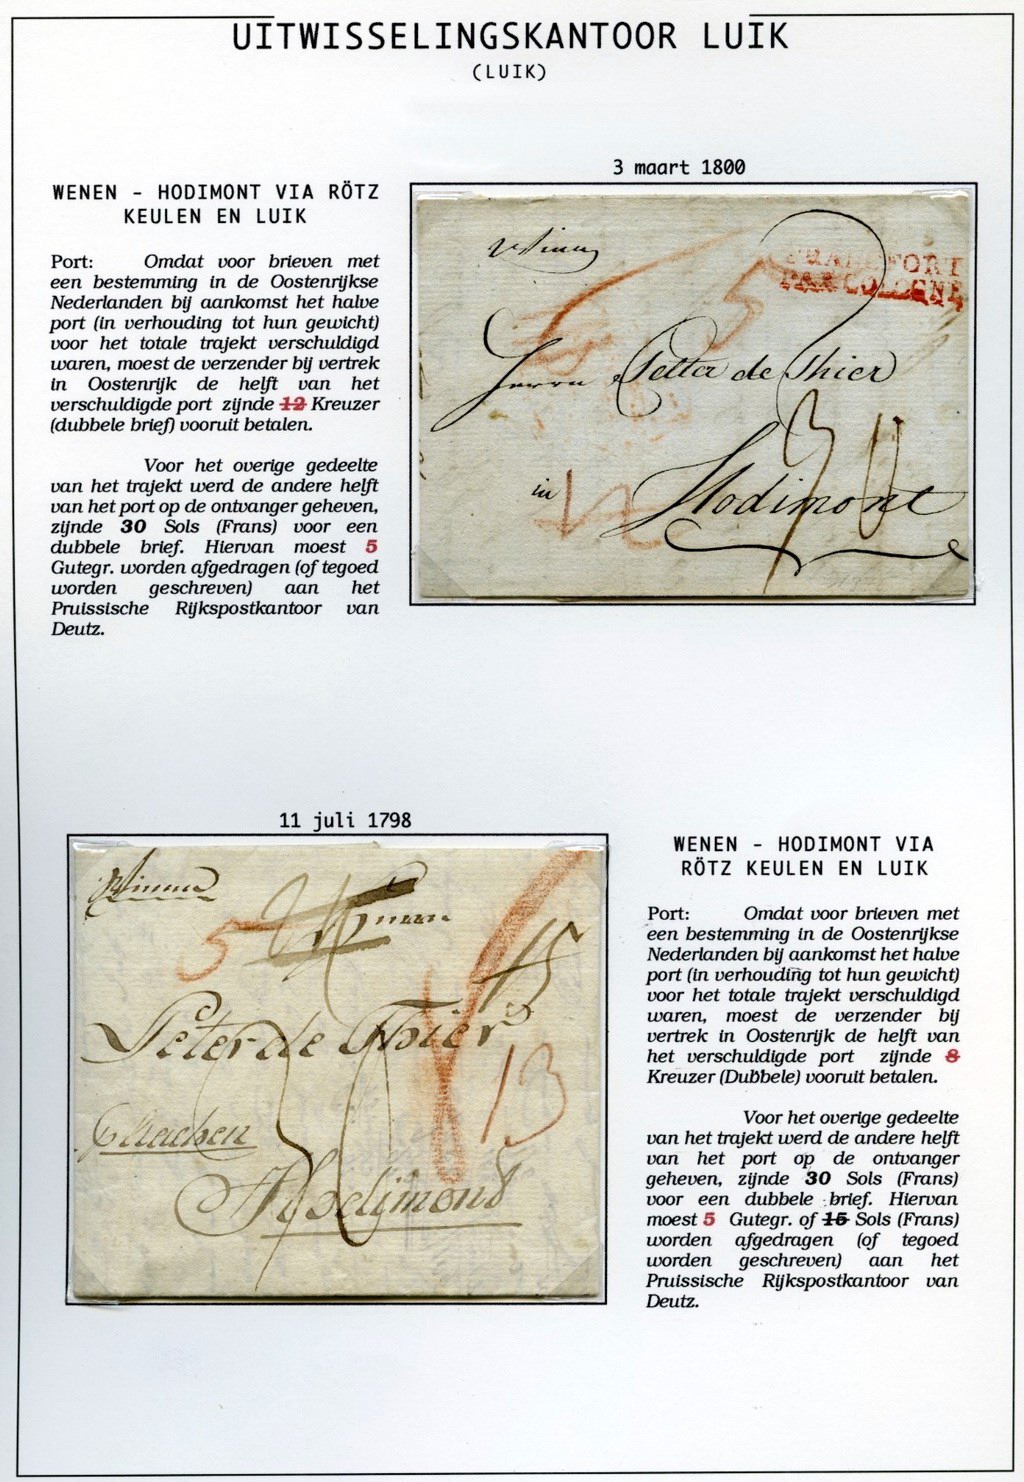 UITWISSELINGSKANTOOR LUIK
(LUIK)
3 maart 1800
WENEN - HODIMONT VIA RÖTZ
KEULEN EN LUIK
Port: Omdat voor brieven met
een bestemming in de Oostenrijkse
Nederlanden bij aankomst het halve
port (in verhouding tot hun gewicht)
voor het totale trajekt verschuldigd
waren, moest de verzender bij vertrek
in Oostenrijk de helft van het
verschuldigde port zijnde 12 Kreuzer
(dubbele brief) vooruit betalen.
Voor het overige gedeelte
van het trajekt werd de andere helft
van het port op de ontvanger geheven,
zijnde 30 Sols (Frans) voor een
dubbele brief. Hiervan moest 5
Gutegr. worden afgedragen (of tegoed
worden geschreven) aan het
Pruissische Rijkspostkantoor van
Deutz.
FRANCFORT
PAR COLOGNE
5
Herrn Petter de Thier
in Hodimont
30
12
11 juli 1798
5
15
Peter de Thier
13
30
p Aachen
Hodimond
WENEN - HODIMONT VIA
RÖTZ KEULEN EN LUIK
Port: Omdat voor brieven met
een bestemming in de Oostenrijkse
Nederlanden bij aankomst het halve
port (in verhouding tot hun gewicht)
voor het totale trajekt verschuldigd
waren, moest de verzender bij
vertrek in Oostenrijk de helft van
het verschuldigde port zijnde 8
Kreuzer (Dubbele) vooruit betalen.
Voor het overige gedeelte
van het trajekt werd de andere helft
van het port op de ontvanger
geheven, zijnde 30 Sols (Frans)
voor een dubbele brief. Hiervan
moest 5 Gutegr. of 15 Sols (Frans)
worden afgedragen (of tegoed
worden geschreven) aan het
Pruissische Rijkspostkantoor van
Deutz.